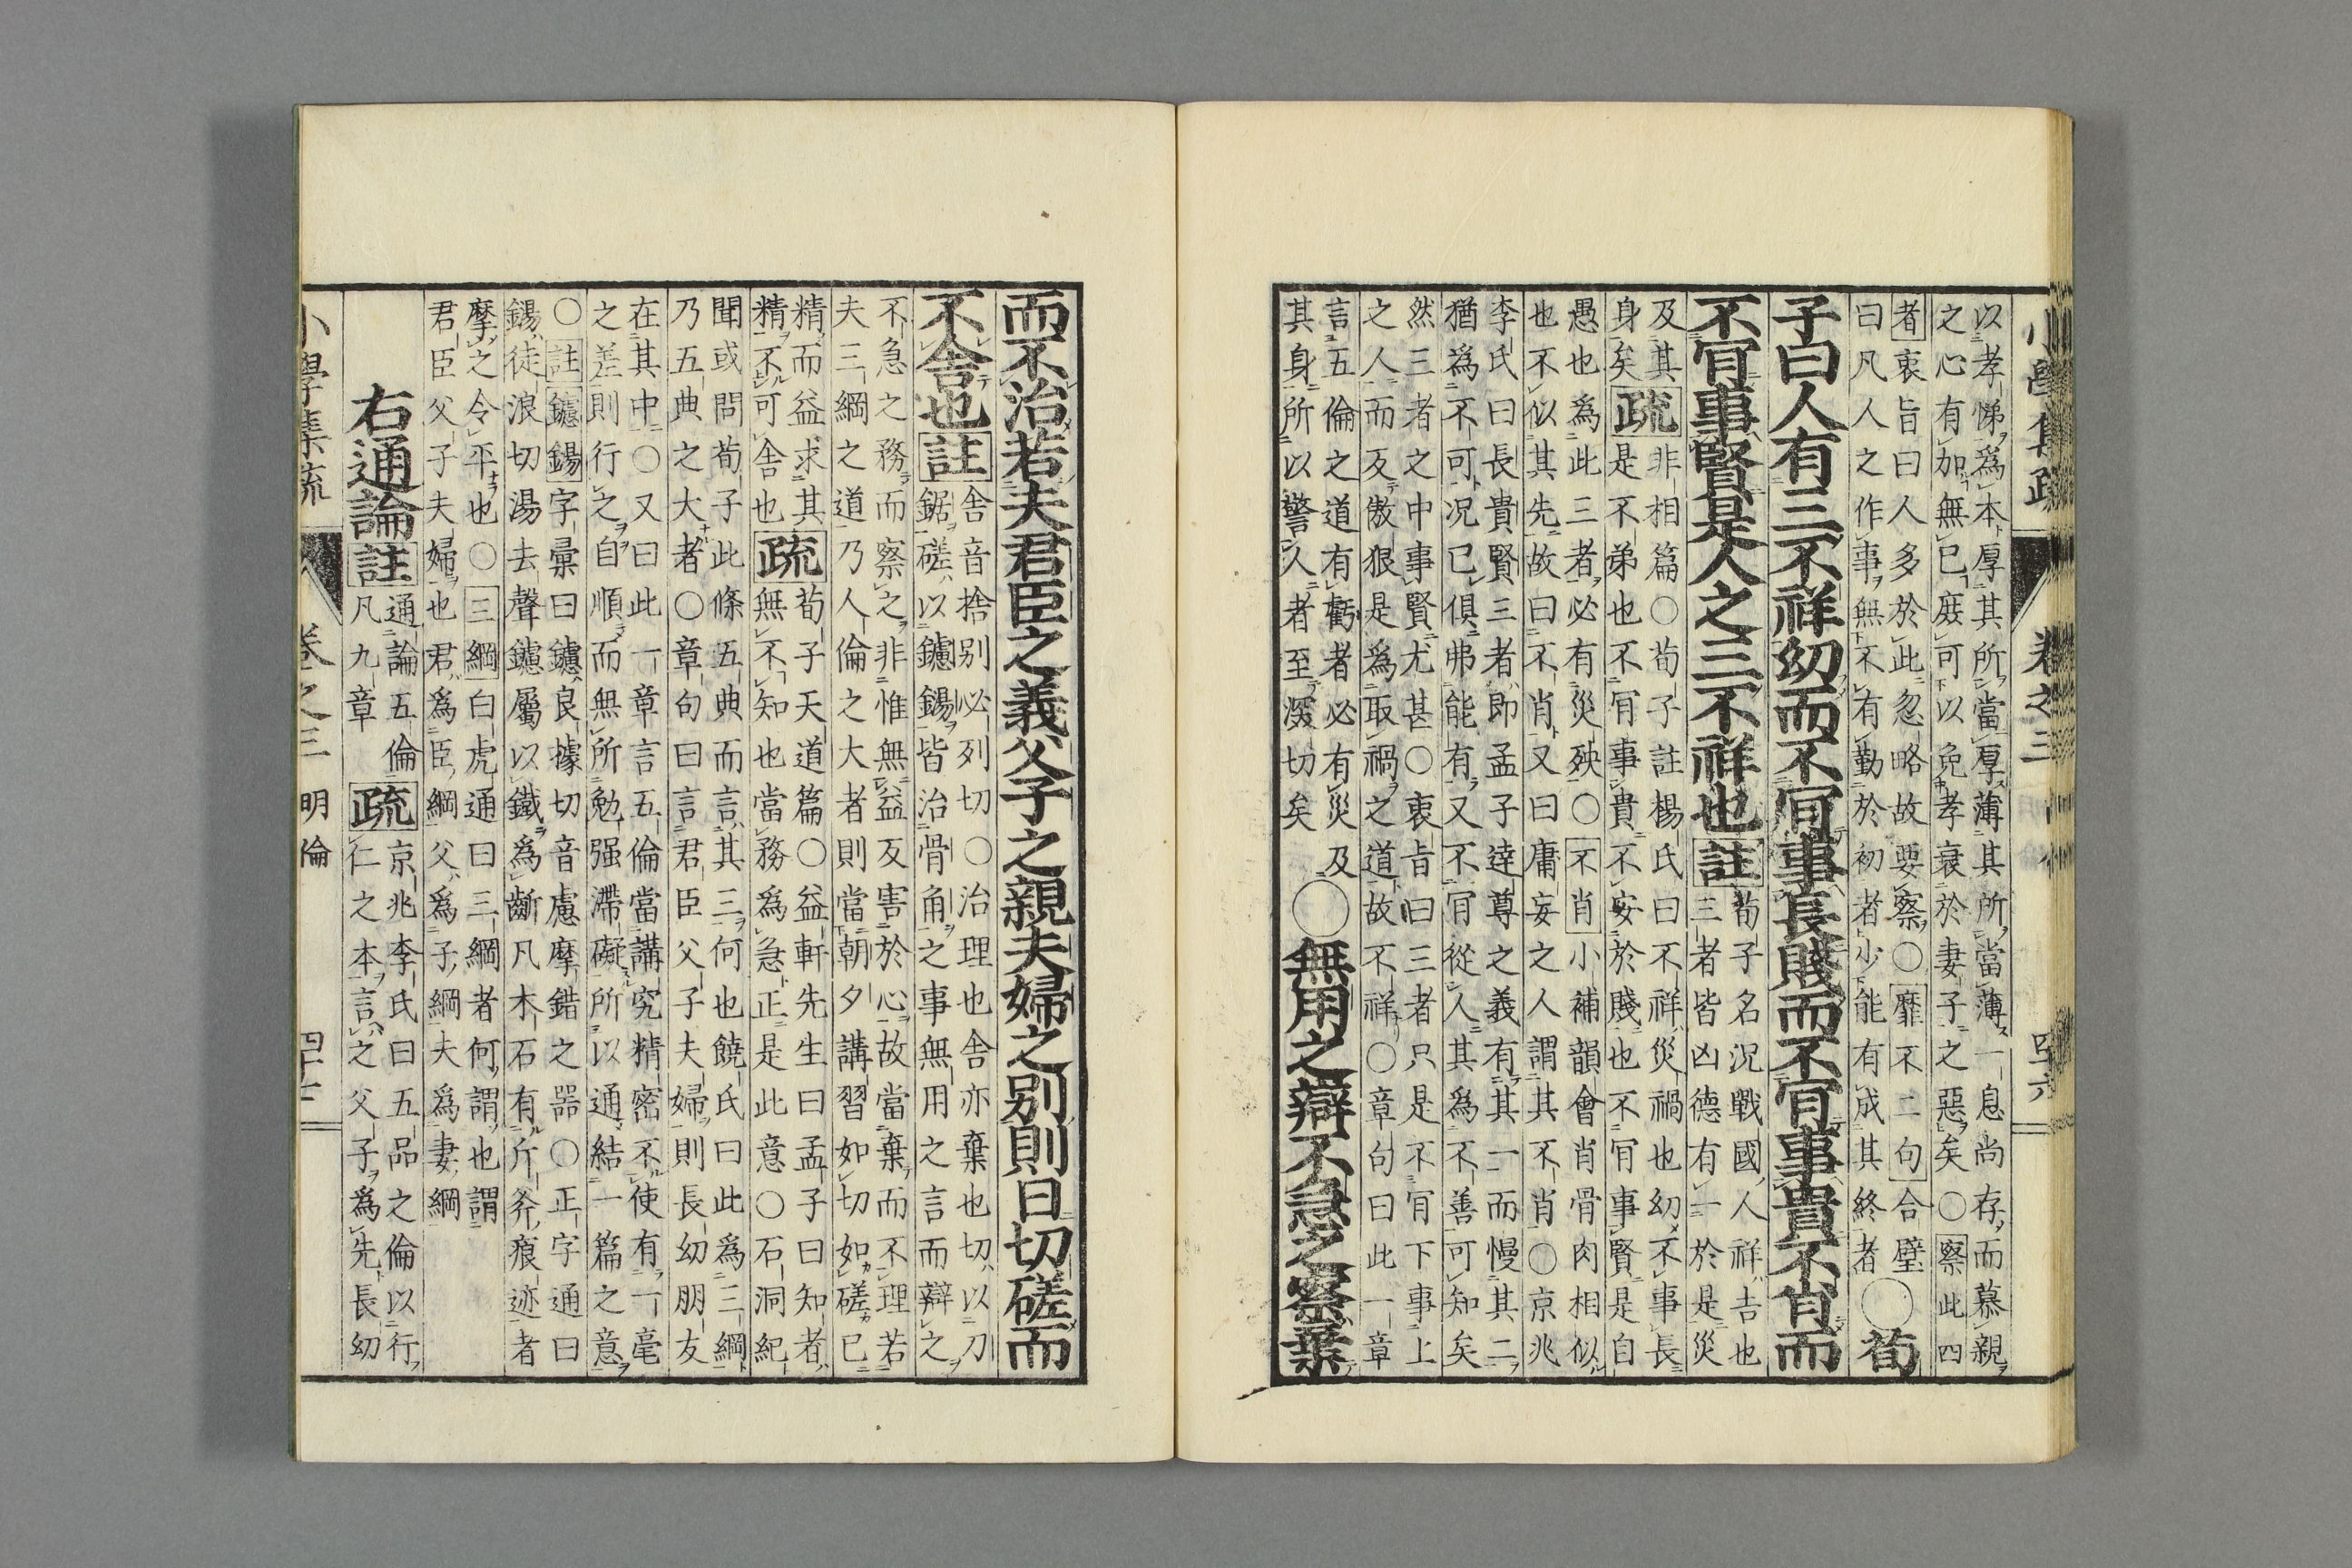 小學集疏 卷之三 四十六
以孝悌爲本厚其所當厚薄其所當薄一息尚存而慕親
之心有加無已庶可以免孝衰於妻子之惡矣○察此四
者衷旨曰人多於此忽略故要察○靡不二句合璧
曰凡人之作事無不有勤於初者少能有成其終者○荀
子曰人有三不祥幼而不肎事長賤而不肎事貴不肖而
不肎事賢是人之三不祥也註荀子名況戰國人祥吉也
三者皆凶德有一於是災
及其
身矣疏非相篇○荀子註楊氏曰不祥災禍也幼不事長
是不弟也不肎事貴不安於賤也不肎事賢是自
愚也爲此三者必有災殃○不肖小補韻會肖骨肉相似
也不似其先故曰不肖又曰庸妄之人謂其不肖○京兆
李氏曰長貴賢三者卽孟子達尊之義有其一而慢其二
猶爲不可况已俱弗能有又不肎從人其爲不善可知矣
然三者之中事賢尤甚○衷旨曰三者只是不肎下事上
之人而反傲狠是爲取禍之道故不祥○章句曰此一章
言五倫之道有虧者必有災及
其身所以警人者至深切矣○無用之辯不急之察棄
而不治若夫君臣之義父子之親夫婦之别則日切磋而
不舍也註舍音捨别必列切○治理也舍亦棄也切以刀
鋸磋以鑢鐋皆治骨角之事無用之言而辯之
不急之務而察之非惟無益反害於心故當棄而不理若
夫三綱之道乃人倫之大者則當朝夕講習如切如磋已
精而益求其
精不可舍也疏荀子天道篇○益軒先生曰孟子曰知者
無不知也當務爲急正是此意○石洞紀
聞或問荀子此條五典而言其三何也饒氏曰此爲三綱
乃五典之大者○章句曰言君臣父子夫婦則長幼朋友
在其中○又曰此一章言五倫當講究精密不使有一毫
之差則行之自順而無所勉强滯礙所以通結一篇之意
○註鑢鐋字彙曰鑢良據切音慮摩錯之器○正字通曰
鐋徒浪切湯去聲鑢屬以鐵爲齗凡木石有斤斧痕迹者
摩之令平也○三綱白虎通曰三綱者何謂也謂
君臣父子夫婦也君爲臣綱父爲子綱夫爲妻綱
右通論註通論五倫
凡九章疏京兆李氏曰五品之倫以行
仁之本言之父子爲先長幼
小學集疏 卷之三 明倫